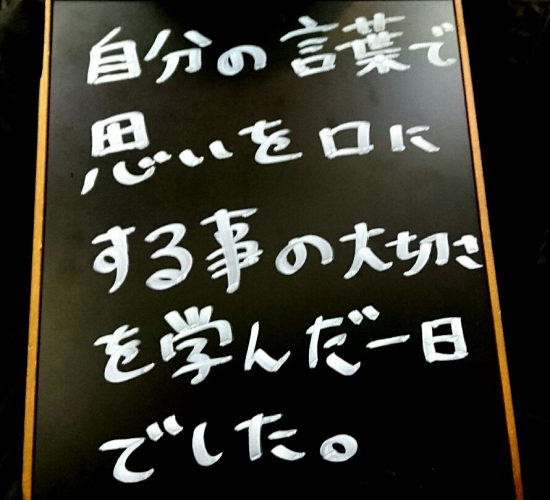 自分の言葉で
思いを口に
する事の大切さ
を学んだ一日
でした。